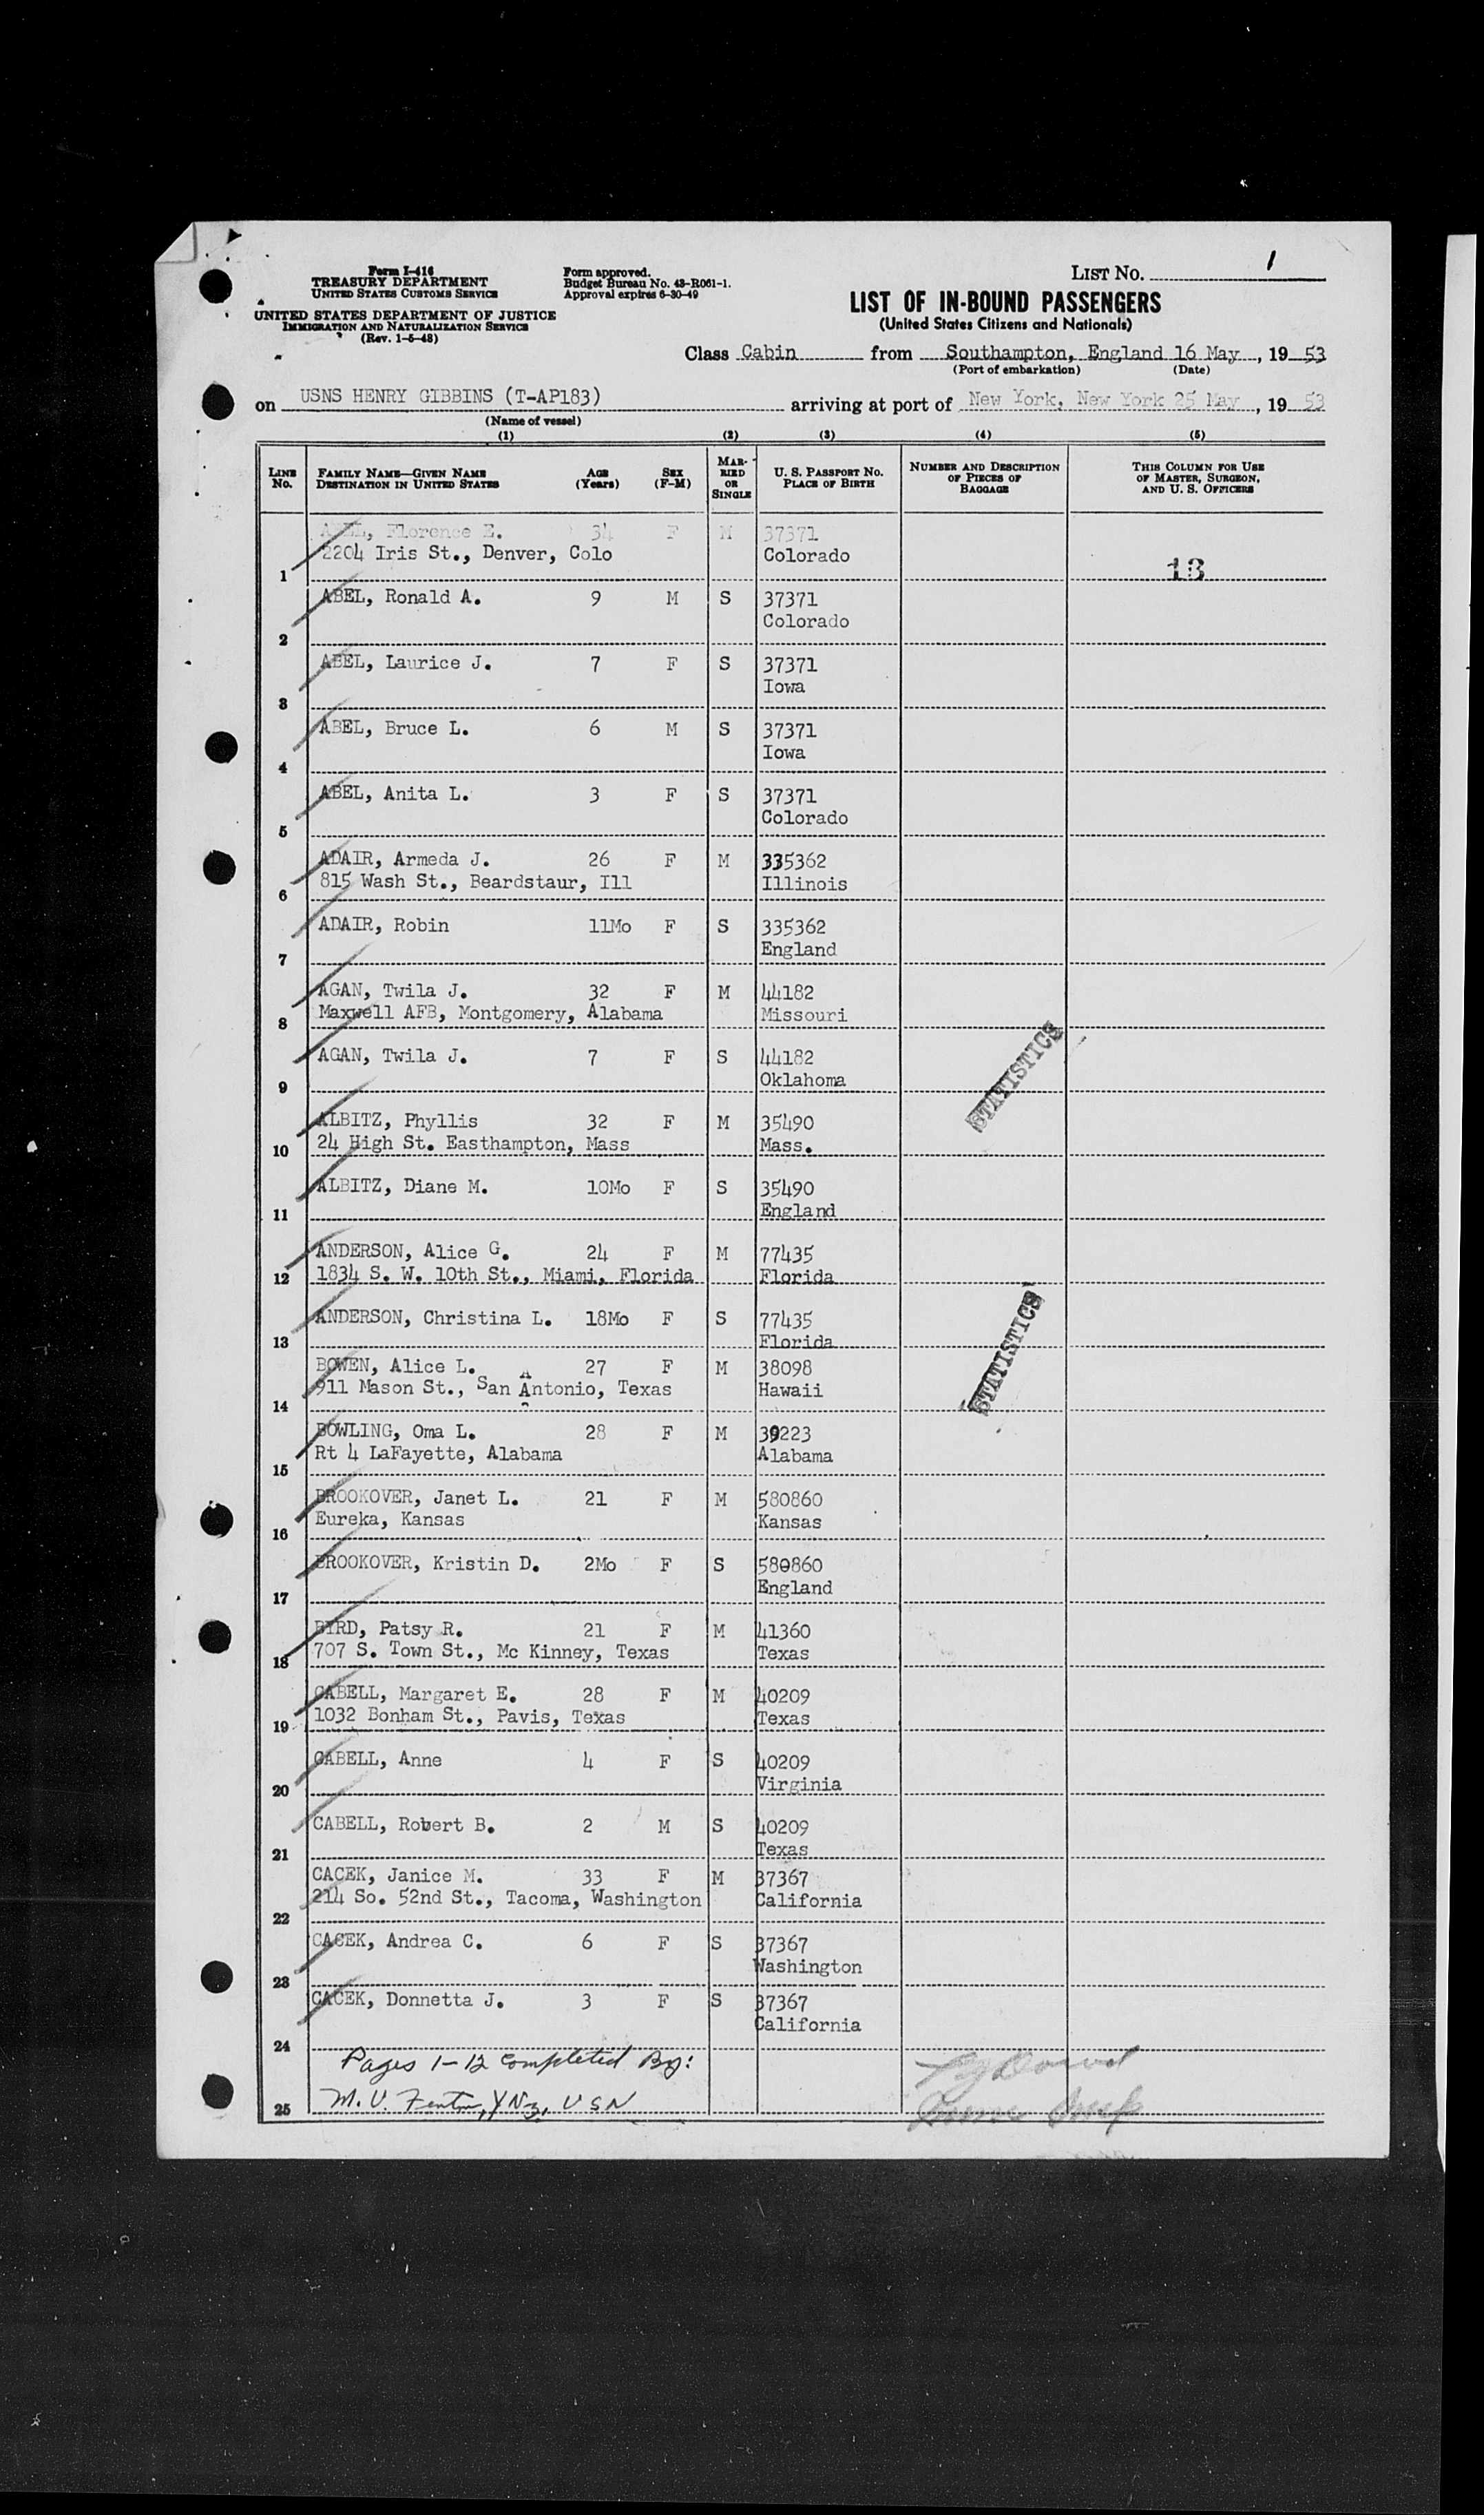 LIST NO. 1
Form I-416
TREASURY DEPARTMENT
UNITED STATES CUSTOMS SERVICE
UNITED STATES DEPARTMENT OF JUSTICE
IMMIGRATION AND NATURALIZATION SERVICE
(Rev. 1-5-48)
Form approved.
Budget Bureau No. 43-R061-1.
Approval expires 6-30-49
LIST OF IN-BOUND PASSENGERS
(United States Citizens and Nationals)
Class Cabin from Southampton, England 16 May, 19 53
(Port of embarkation) (Date)
on USNS HENRY GIBBINS (T-AP183) arriving at port of New York, New York 25 May, 19 53
(Name of vessel)
(1) (2) (3) (4) (5)
LINE NO. FAMILY NAME—GIVEN NAME DESTINATION IN UNITED STATES AGE (Years) SEX (F-M) MARRIED OR SINGLE U. S. PASSPORT NO. PLACE OF BIRTH NUMBER AND DESCRIPTION OF PIECES OF BAGGAGE THIS COLUMN FOR USE OF MASTER, SURGEON, AND U. S. OFFICERS
ABEL, Florence E. 34 F M 37371
2204 Iris St., Denver, Colo Colorado
1 13
ABEL, Ronald A. 9 M S 37371
Colorado
2
ABEL, Laurice J. 7 F S 37371
Iowa
3
ABEL, Bruce L. 6 M S 37371
Iowa
4
ABEL, Anita L. 3 F S 37371
Colorado
5
ADAIR, Armeda J. 26 F M 335362
815 Wash St., Beardstaur, Ill Illinois
6
ADAIR, Robin 11Mo F S 335362
England
7
AGAN, Twila J. 32 F M 44182
Maxwell AFB, Montgomery, Alabama Missouri
8
AGAN, Twila J. 7 F S 44182
Oklahoma
9
STATISTICS
ALBITZ, Phyllis 32 F M 35490
24 High St. Easthampton, Mass Mass.
10
ALBITZ, Diane M. 10Mo F S 35490
England
11
ANDERSON, Alice G. 24 F M 77435
1834 S. W. 10th St., Miami, Florida Florida
12
ANDERSON, Christina L. 18Mo F S 77435
Florida
13
STATISTICS
BOWEN, Alice L. 27 F M 38098
911 Mason St., San Antonio, Texas Hawaii
14
BOWLING, Oma L. 28 F M 39223
Rt 4 LaFayette, Alabama Alabama
15
BROOKOVER, Janet L. 21 F M 580860
Eureka, Kansas Kansas
16
BROOKOVER, Kristin D. 2Mo F S 580860
England
17
BYRD, Patsy R. 21 F M 41360
707 S. Town St., Mc Kinney, Texas Texas
18
CABELL, Margaret E. 28 F M 40209
1032 Bonham St., Pavis, Texas Texas
19
CABELL, Anne 4 F S 40209
Virginia
20
CABELL, Robert B. 2 M S 40209
Texas
21
CACEK, Janice M. 33 F M 37367
214 So. 52nd St., Tacoma, Washington California
22
CACEK, Andrea C. 6 F S 37367
Washington
23
CACEK, Donnetta J. 3 F S 37367
California
24
Pages 1-12 Completed By:
M. V. Fenton, YN3, USN
25